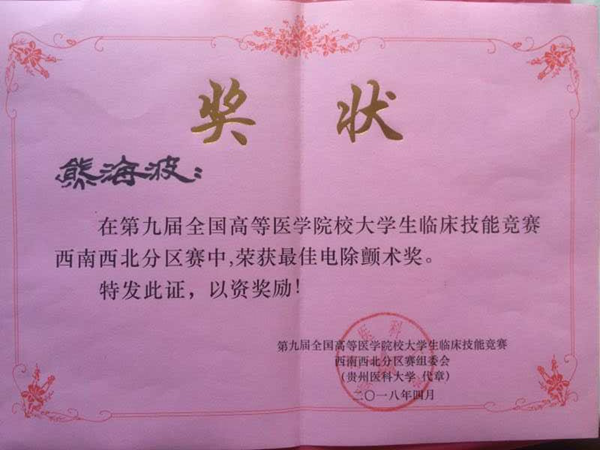 奖状
熊海波：
在第九届全国高等医学院校大学生临床技能竞赛
西南西北分区赛中,荣获最佳电除颤术奖。
特发此证，以资奖励！
第九届全国高等医学院校大学生临床技能竞赛
西南西北分区赛组委会
（贵州医科大学 代章）
二〇一八年四月